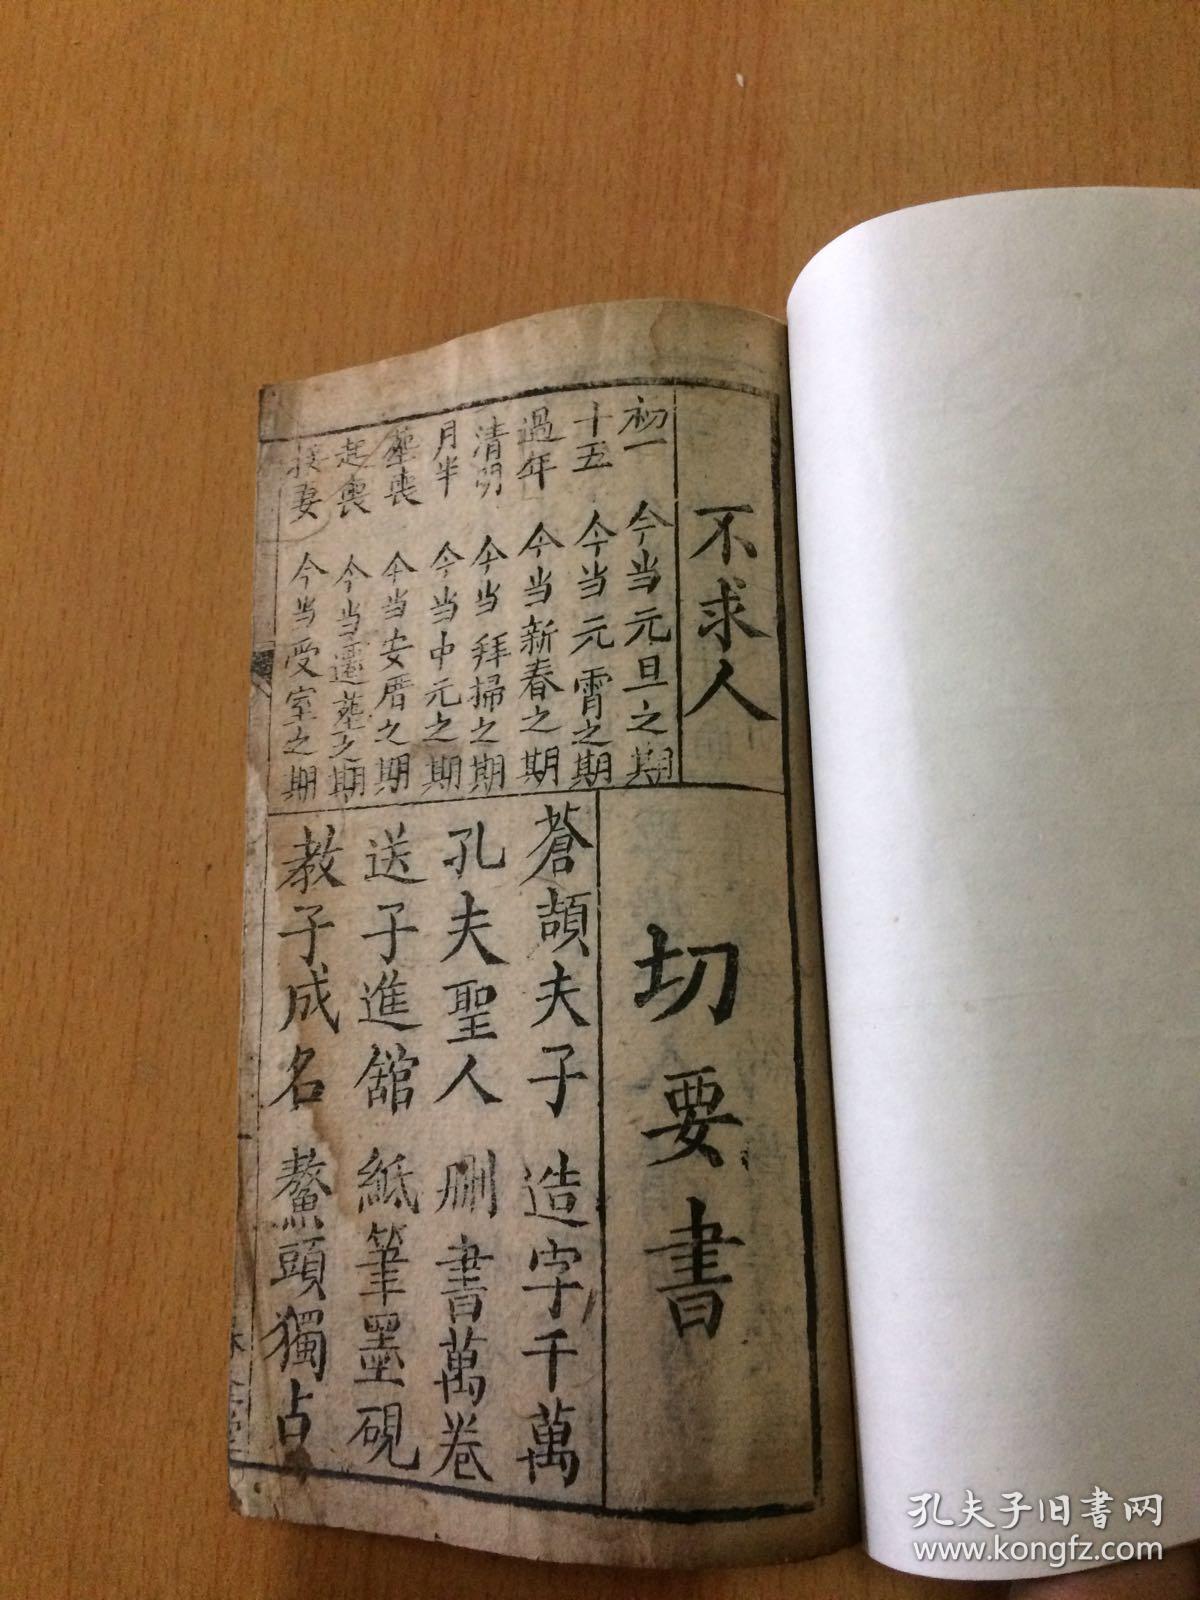 不求人
初一 今当元旦之期
十五 今当元霄之期
過年 今当新春之期
清明 今当拜掃之期
月半 今当中元之期
塟丧 今当安厝之期
起喪 今当還塟之期
接妻 今当受室之期
切要書
蒼頡夫子 造字千萬
孔夫聖人 刪書萬卷
送子進舘 紙筆墨硯
教子成名 鰲頭獨占
孔夫子旧书网
www.kongfz.com